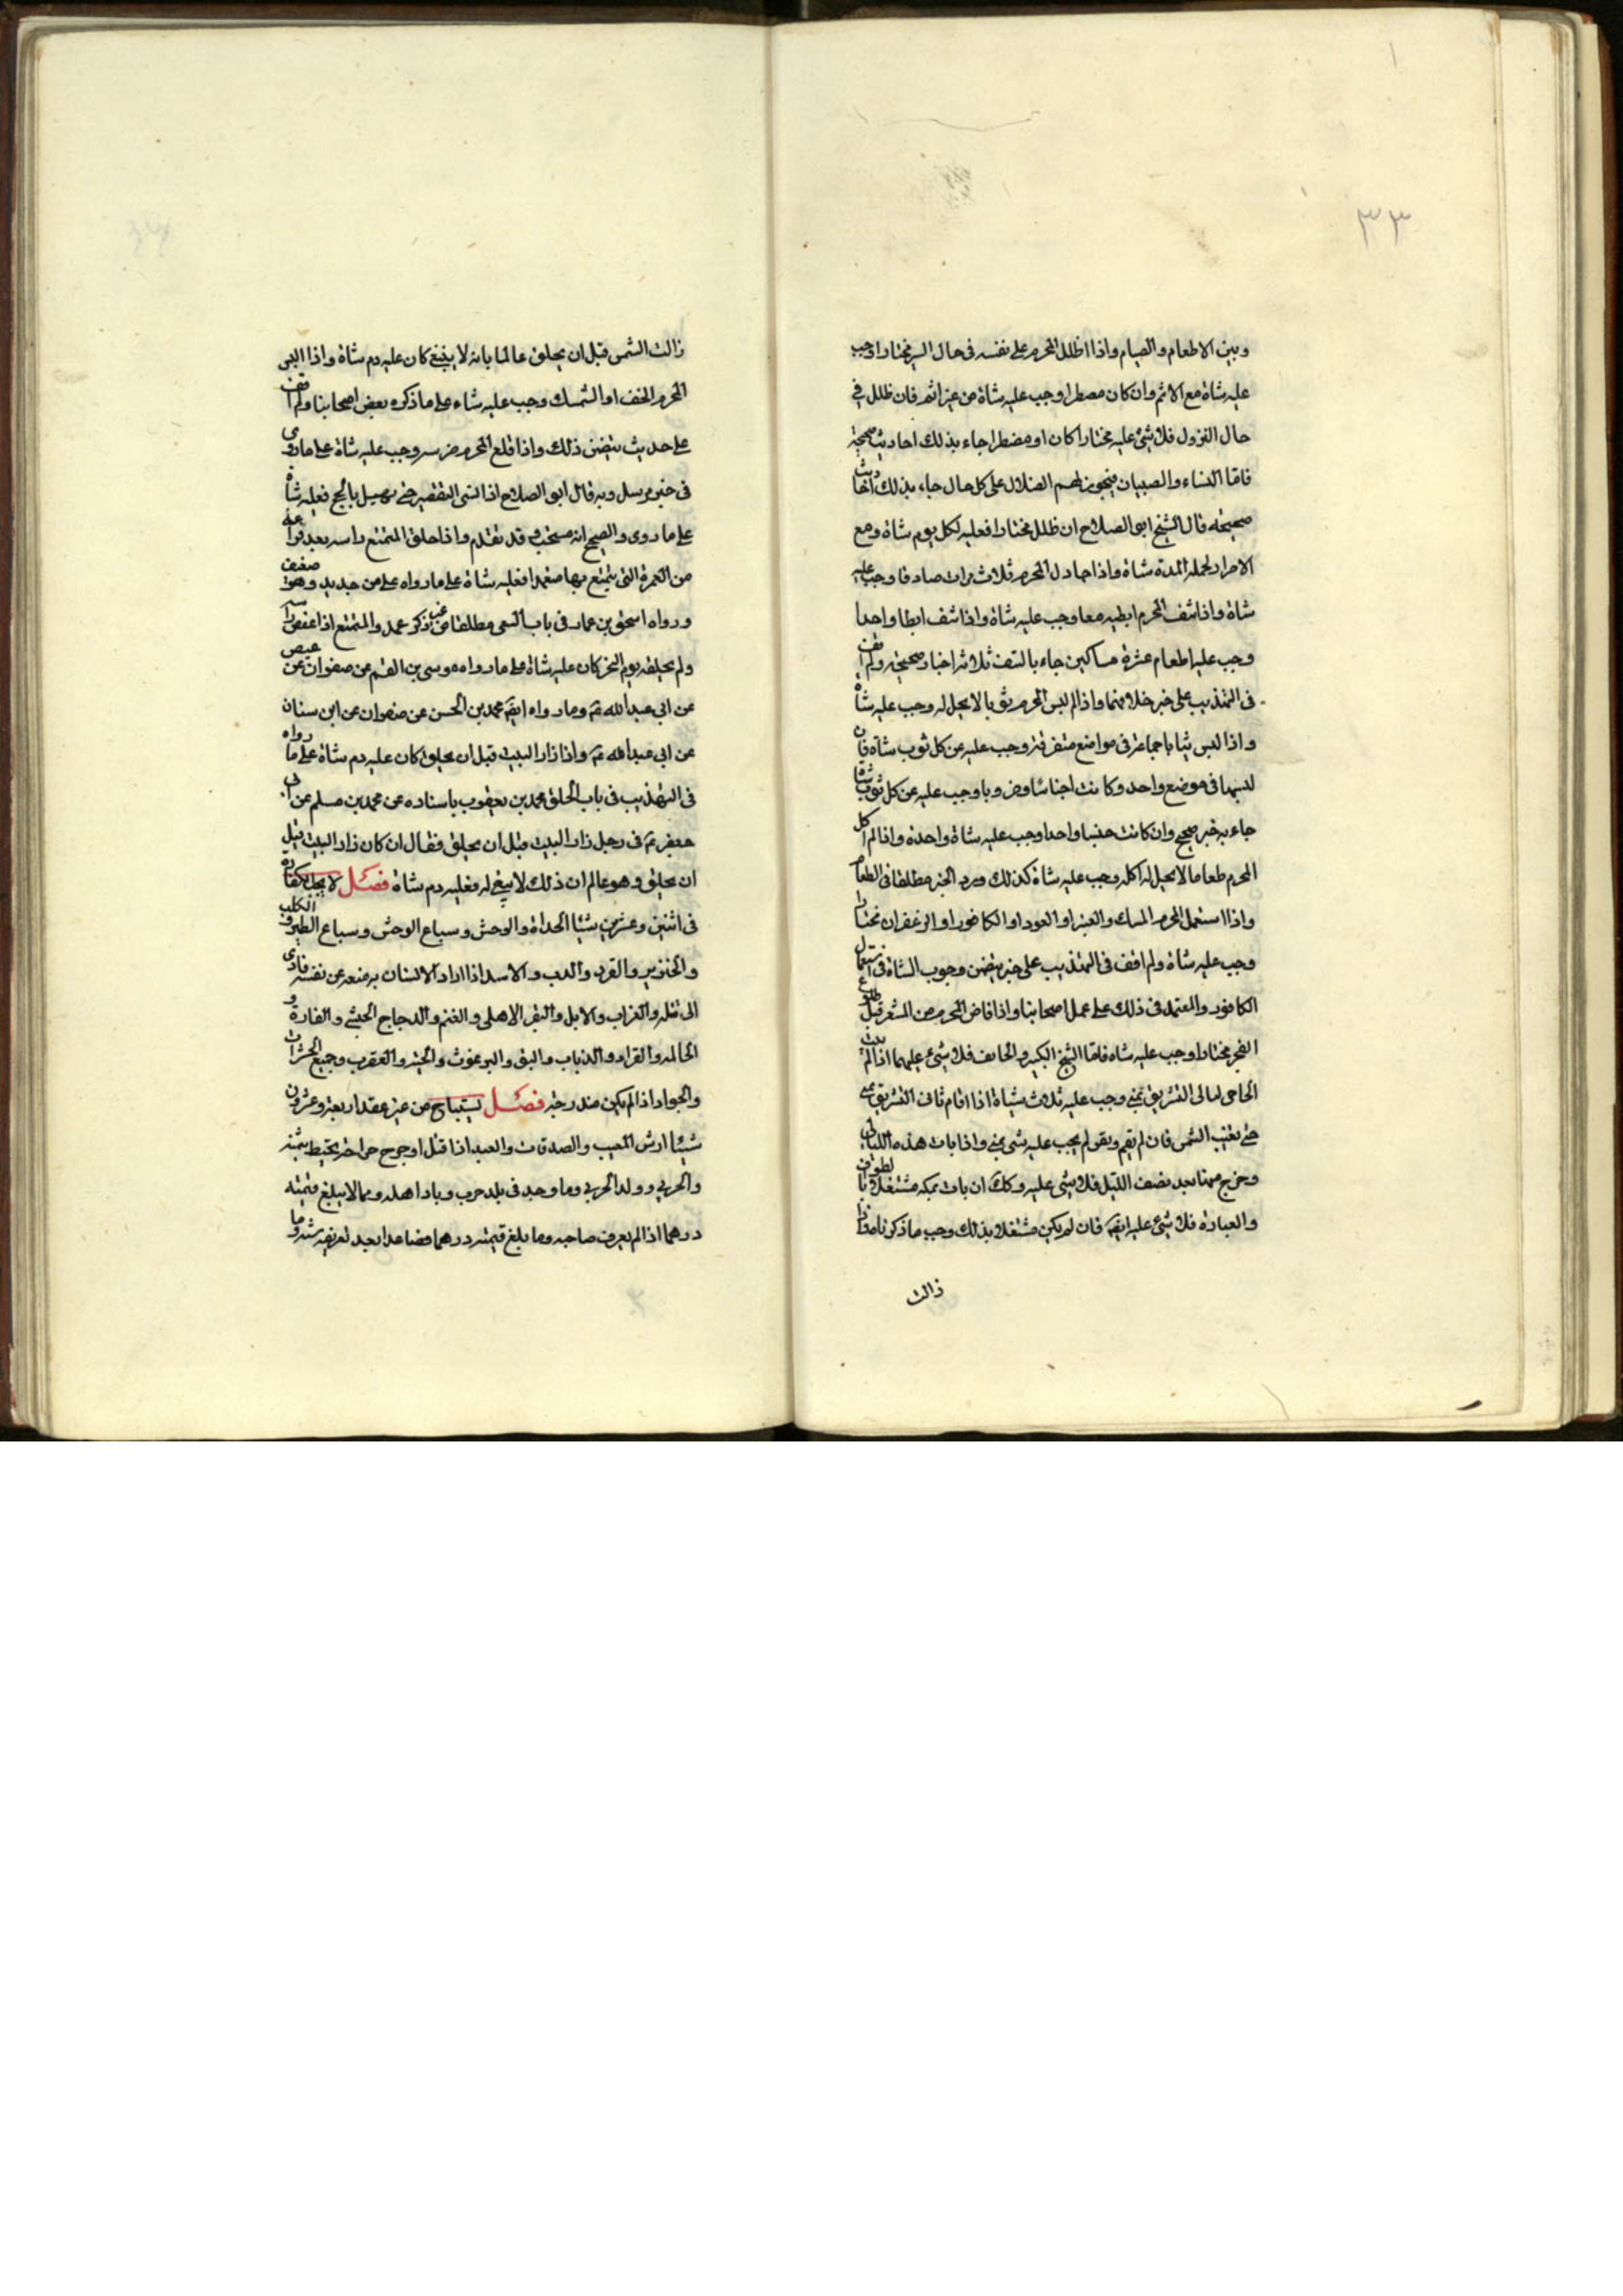 ٣٣
وبين الاطعام والصيام واذا اظلل المحرم على نفسه فى حال السير مختارا وجب
عليه شاة مع الاثم وان كان مضطرا وجب عليه شاة من غير اثم فان ظلل فى
حال النزول فلا شئ عليه مختارا كان او مضطرا جاء بذلك احاديث صحيحة
فاما النساء والصبيان فيجوز لهم الضلال على كل حال جاء بذلك احاديث
صحيحه قال الشيخ ابو الصلاح ان ظلل مختارا فعليه لكل يوم شاة ومع
الاضرار لجملة المدة شاة واذا جادل المحرم ثلاث مرات صادقا وجب عليه
شاة واذا نتف المحرم ابطيه معا وجب عليه شاة واذا نتف ابطا واحدا
وجب عليه اطعام عشرة مساكين جاء بالنتف ثلاثة اخبار صحيحة ولم اقف
فى التهذيب على خبر خلاف منها واذا لبس المحرم ثوبا لا يحل له وجب عليه شاة
واذا لبس ثيابا جماعة فى مواضع متفرقة وجب عليه عن كل ثوب شاة فان
لبسها فى موضع واحد وكانت اجناسا وضروبا وجب عليه عن كل ثوب شاة
جاء به خبر صحيح وان كانت جنسا واحدا وجب عليه شاة واحدة واذا اكل
المحرم طعاما لا يحل له اكله وجب عليه شاة كذلك ورد الخبر مطلقا فى الطعام
واذا استعمل المحرم المسك والعنبر او العود او الكافور او الزعفران مختارا
وجب عليه شاة ولم اقف فى التهذيب على خبر يتضمن وجوب الشاة فى استعمال
الكافور والمعتمد فى ذلك على عمل اصحابنا واذا فاض المحرم من المشعر قبل طلوع
الفجر مختارا وجب عليه شاه فاما الشيخ الكبير والخايف فلا شئ عليهما اذا لم يبت
الحاجى ليالى التشريق بمنى وجب عليه ثلاث شياة اذا اقام ثانى التشريق بمنى
حتى تغيب الشمس فان لم يقم ويقو لم يجب عليه شى بمنى واذا بات هذه الليالى
وخرج منها بعد نصف الليل فلا شى عليه وكك ان بات بمكه مشتغلا بالطواف
والعبادة فلا شئ عليه ايضا فان لم يكن مشتغلا بذلك وجب ما ذكرناه واذا
زالت
زالت الشمس قبل ان يحلق عالما بانه لا ينبغى كان عليه دم شاة واذا لبس
المحرم الخف او الشمسك وجب عليه شاء على ما ذكره بعض اصحابنا ولم اقف
على حديث يتضمن ذلك واذا قلع المحرم ضرسه وجب عليه شاة على ما روى
فى خبر مرسل وبه قال ابو الصلاح اذا نسى التقصير حتى يهل بالحج فعليه شاة
على ما روى والصحيح انه مستحب وقد تقدم واذا حلق المتمتع راسه بعد فراغه
من العمرة التى يتمتع بها متعمدا فعليه شاة على ما رواه على من حديد وهو ضعيف
ورواه اسحق بن عمار فى باب السعى مطلقا من غير ذكر عمد والمتمتع اذا عقص راسه
ولم يحلقه يوم النحر كان عليه شاة على ما رواه موسى بن القسم عن صفوان عن عيص
عن ابى عبد الله ع وما رواه ايضا محمد بن الحسن عن صفوان عن ابن سنان
عن ابى عبد الله ع واذا زار البيت قبل ان يحلق كان عليه دم شاة على ما رواه
فى التهذيب فى باب الحلق محمد بن يعقوب باسناده عن محمد بن مسلم عن ابى
جعفر ع فى رجل زار البيت قبل ان يحلق فقال ان كان زار البيت قبل
ان يحلق وهو عالم ان ذلك لا ينبغى له فعليه دم شاة فصل لا تجب الكفارة
فى اثنين وعشرين شيئا الحداة والوحش وسباع الوحش وسباع الطير والكلب
والخنزير والقرد والدب والاسد اذا اراد الانسان به منعه عن نفسه فادى
الى قتله والغراب والابل والبقر الاهلى والغنم والدجاج الحبشى والفارة و
الحالمه والقراد والذباب والبق والبرغوث والحية والعقرب وجميع الحشرات
والجواد اذا لم يكن مندرجه فصل يستباح من غير عقد اربعة وعشرون
شيئا ارش العيب والصدقات والعبد اذا قتل او جرح جراحة يحيط بثمنه
والحربى وولد الحربى وما وجد فى بلد خرب وباد اهله ومما لا يبلغ قيمته
درهما اذا لم يعرف صاحبه وما بلغ قيمته درهما فصاعدا بعد تعريفه سنة وما